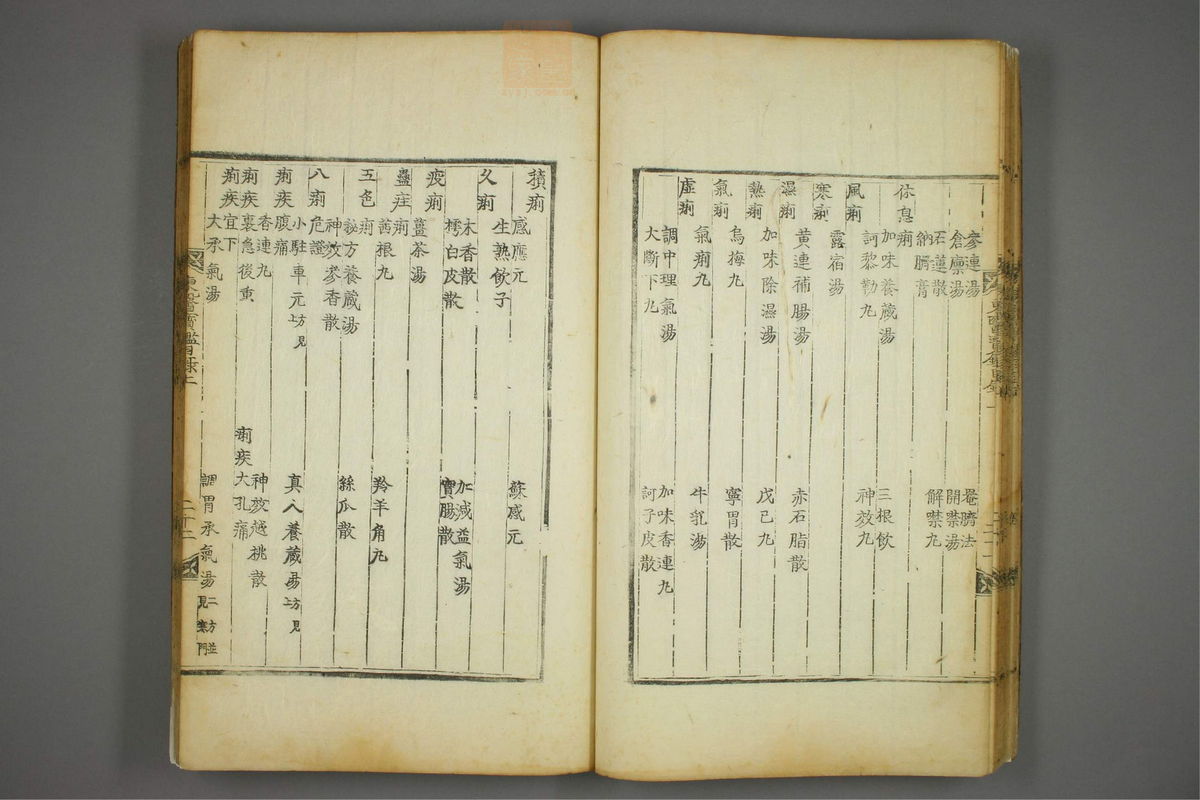 參連湯 罨臍法
倉廩湯 開噤湯
石蓮散 解噤丸
納臍膏
休息痢
加味養蔵湯 三根飲
訶黎勒丸 神效丸
風痢
露宿湯
寒痢
黃連補腸湯 赤石脂散
濕痢
加味除濕湯 戊己丸
熱痢
烏梅丸 寧胃散
氣痢
氣痢丸 牛乳湯
虛痢
調中理氣湯 加味香連丸
大斷下丸 訶子皮散
積痢
感應元 蘇感元
生熟飲子
久痢
木香散 加減益氣湯
樗白皮散 實腸散
疫痢
薑茶湯
蠱疰痢
茜根丸 羚羊角丸
五色痢
秘方養蔵湯 絲瓜散
神效參香散
八痢危證
小駐車元方見上 真人養蔵湯方見上
痢疾腹痛
香連丸 神效越桃散
痢疾裏急後重 痢疾大孔痛
痢疾宜下
大承氣湯 調胃承氣湯二方並見寒門
東醫寶鑑目錄二
二十二